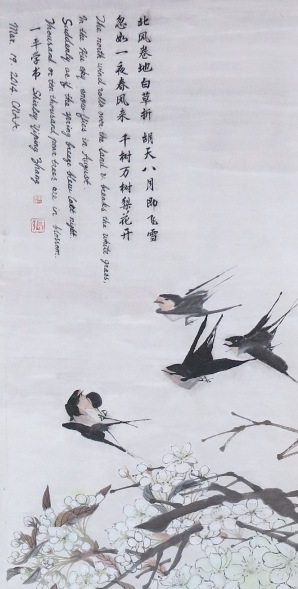 北风卷地白草折 胡天八月即飞雪
忽如一夜春风来 千树万树梨花开
The north wind rolls over the land & breaks the white grass,
In the Hu sky snow flies in August.
Suddenly as if the spring breeze blew last night,
Thousand or ten thousand pear trees are in blossom.
Shirley Yiping Zhang
Mar. 19. 2014.